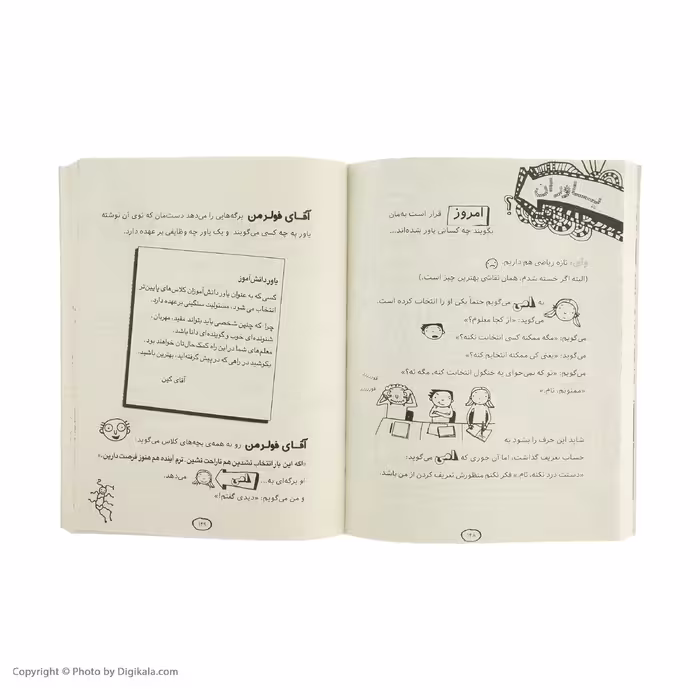 یـــاوران
امروز قرار است به‌مان
بگویند چه کسانی یاور شده‌اند...
وای، تازه ریاضی هم داریم.
(البته اگر خسته شدم، همان نقاشی بهترین چیز است.)
به می‌گویم حتماً یکی او را انتخاب کرده است.
می‌گوید: «از کجا معلوم؟»
می‌گویم: «مگه ممکنه کسی انتخابت نکنه؟»
می‌گوید: «یعنی کی ممکنه انتخابم کنه؟»
می‌گویم: «تو که نمی‌خوای به خنگول انتخابت کنه، مگه نه؟»
«ممنونم، تام.»
شاید این حرف را بشود به
حساب تعریف گذاشت، اما آن جوری که می‌گوید:
«دستت درد نکنه، تام.» فکر نکنم منظورش تعریف کردن از من باشد.
۱۴۸
آقـای فولرمن برگه‌هایی را می‌دهد دست‌مان که توی آن نوشته
یاور به چه کسی می‌گویند و یک یاور چه وظایفی بر عهده دارد.
یاور دانش‌آموز
کسی که به عنوان یاور دانش‌آموزان کلاس‌های پایین‌تر
انتخاب می‌شود، مسئولیت سنگینی بر عهده دارد.
چرا که چنین شخصی باید بتواند مفید، مهربان،
شنونده‌ای خوب و گوینده‌ای دانا باشد.
معلم‌های شما در این راه کمک حال‌تان خواهند بود.
بکوشید در راهی که در پیش گرفته‌اید، بهترین باشید.
آقای کین
آقـای فولرمن رو به همه‌ی بچه‌های کلاس می‌گوید:
«اگه این بار انتخاب نشدین هم ناراحت نشین. ترم آینده هم هنوز فرصت دارین.»
او برگه‌ای به... می‌دهد.
و من می‌گویم: «دیدی گفتم!»
۱۴۹
Copyright © Photo by Digikala.com